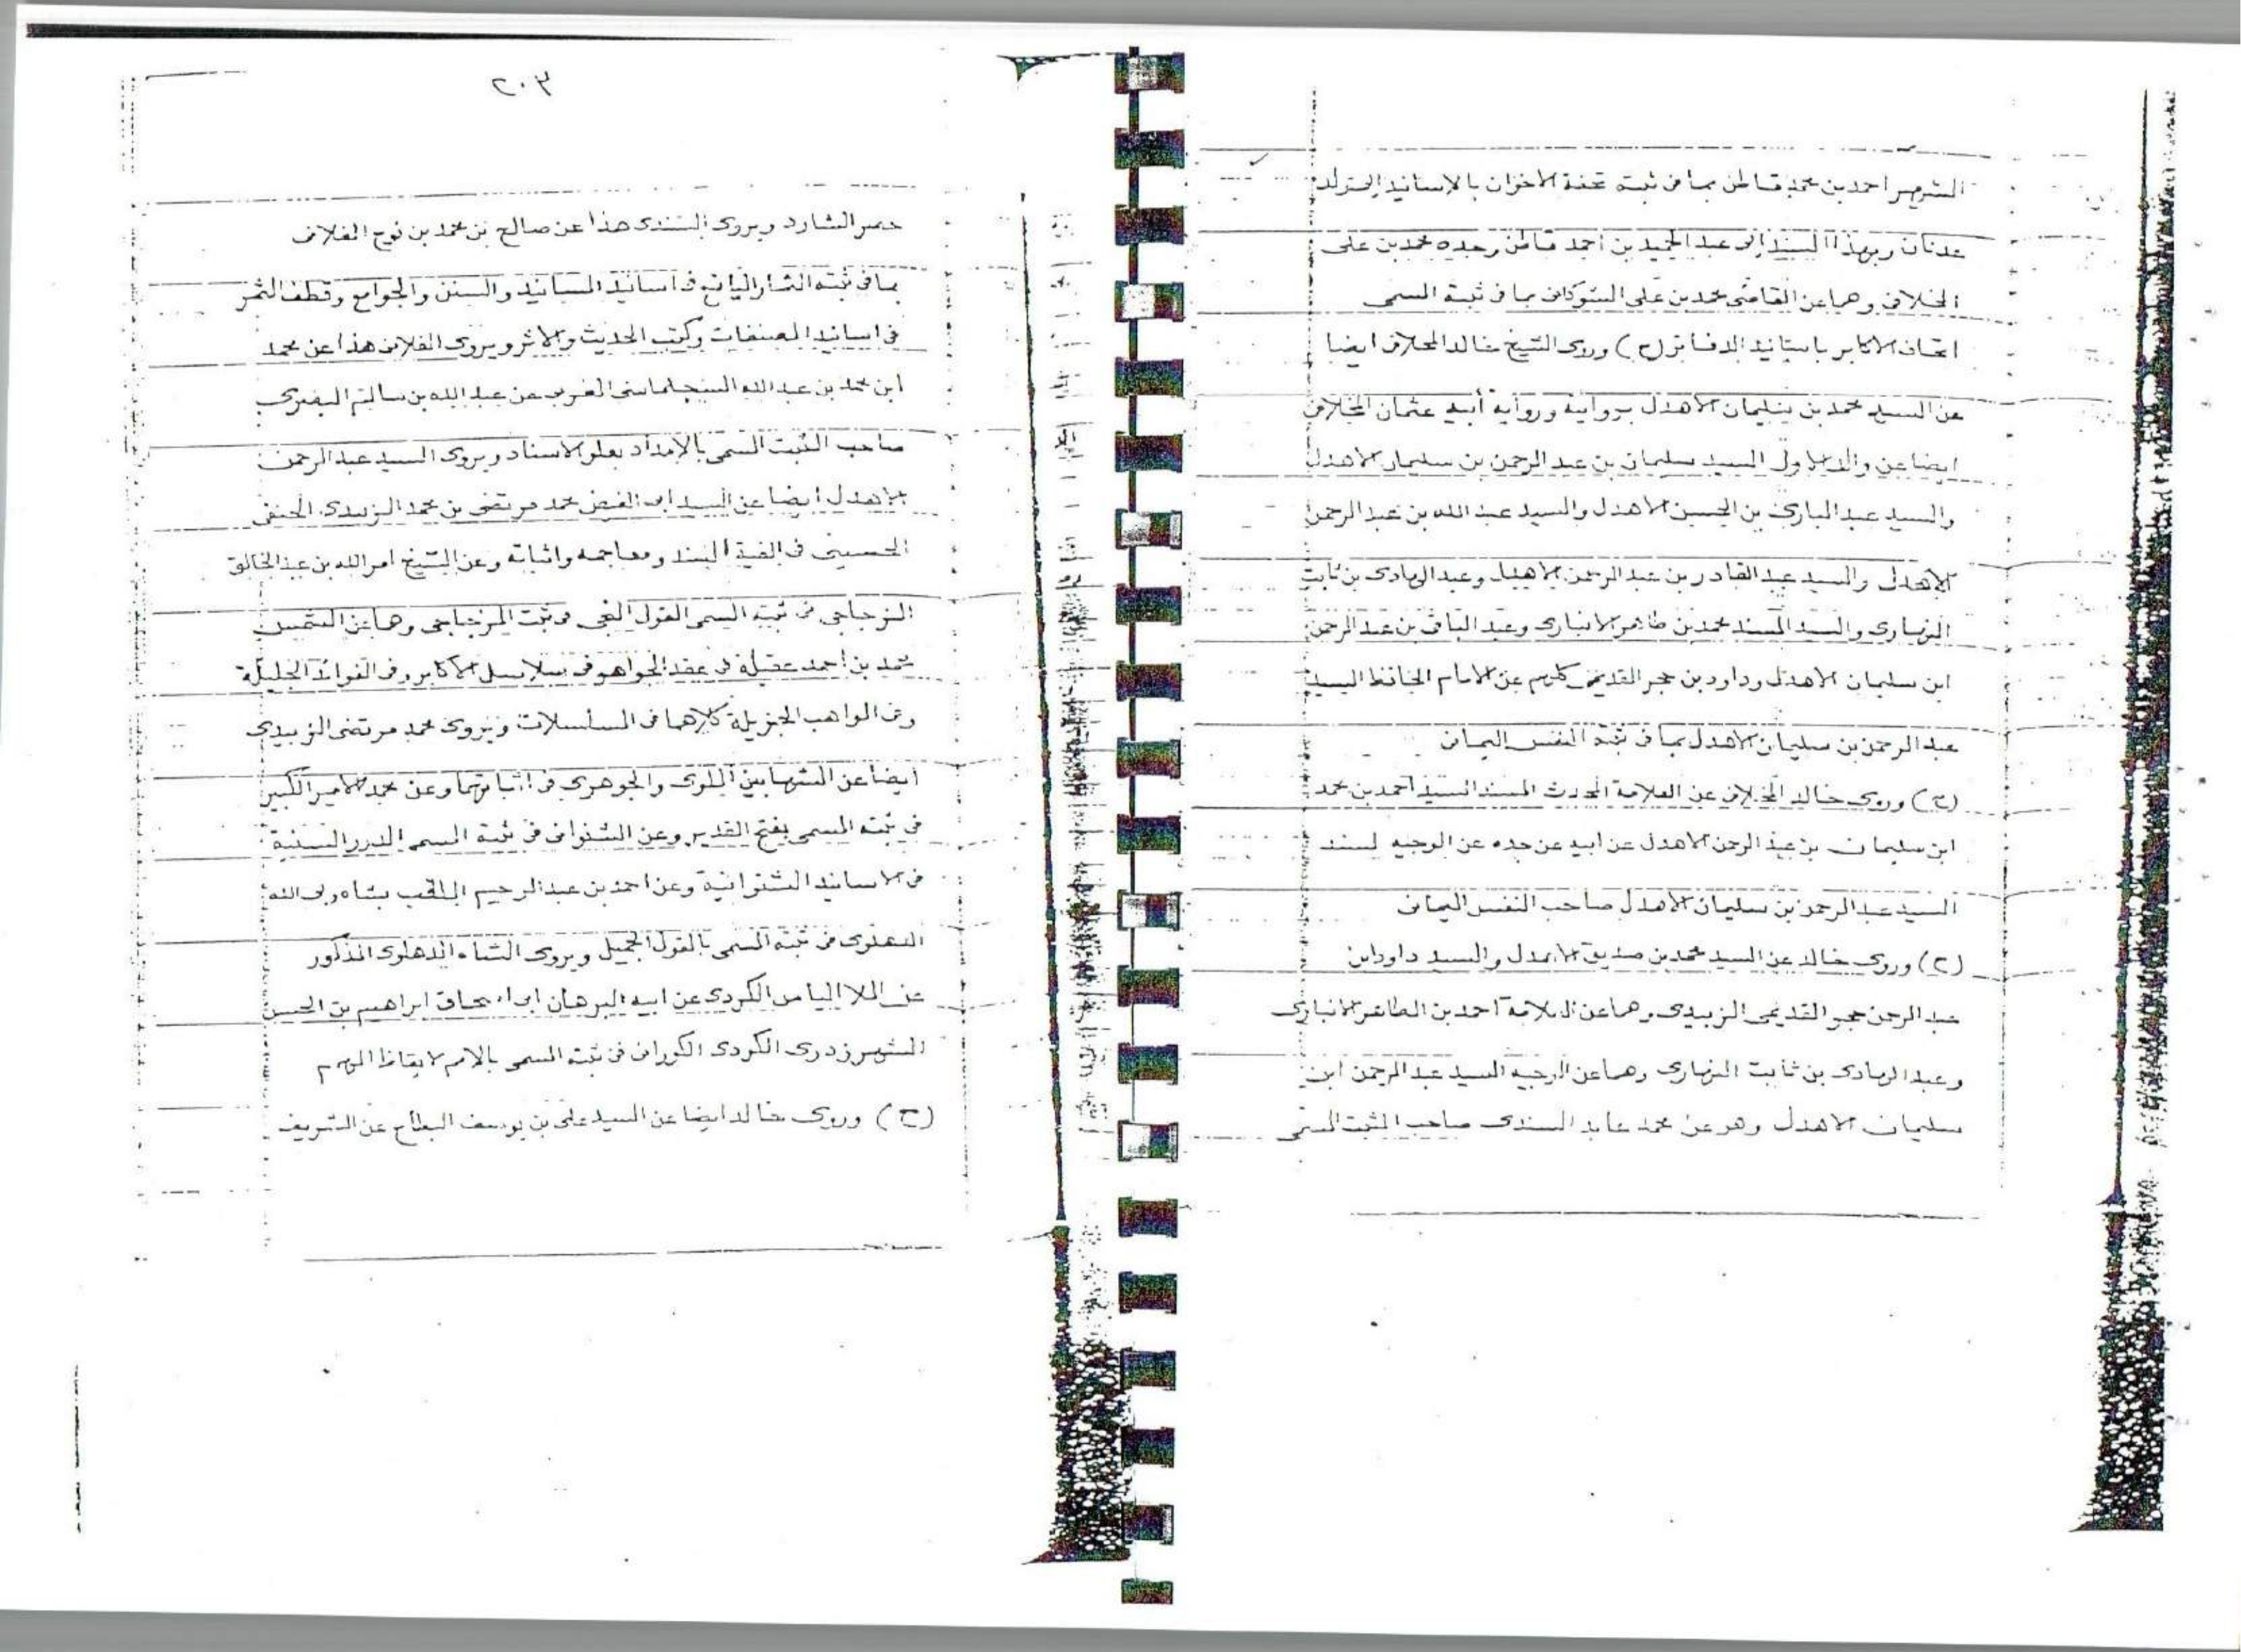 الشهير احمد بن محمد قاطن بما فى ثبته تحفة الاخوان بالاسانيد
عدنان وبهذا السند الى عبد الحميد بن احمد قاطن وجده محمد بن على
الخلافى وهما عن القاضى محمد بن على الشوكانى بما فى ثبته المسمى
اتحاف الاكابر باسانيد الدفاتر (ح) وروى الشيخ خالد الخلافى ايضا
عن السيد محمد بن سليمان الاهدل بروايته ورواية أبيه عثمان الخلافى
ايضا عن والد الاول السيد سليمان بن عبد الرحمن بن سليمان الاهدل
والسيد عبد البارى بن الحسن الاهدل والسيد عبد الله بن عبد الرحمن
الاهدل والسيد عبد القادر بن عبد الرحمن الاهدل وعبد الهادى بن ثابت
النهارى والسيد المسند محمد بن طاهر الانبارى وعبد الباقى بن عبد الرحمن
ابن سليمان الاهدل وداود بن حجر القديمى كلهم عن الامام الحافظ السيد
عبد الرحمن بن سليمان الاهدل بما فى ثبته النفس اليمانى
(ح) وروى خالد الخلافى عن العلامة المحدث المسند السيد احمد بن محمد
ابن سليمان بن عبد الرحمن الاهدل عن ابيه عن جده عن الوجيه المسند
السيد عبد الرحمن بن سليمان الاهدل صاحب النفس اليمانى
(ح) وروى خالد عن السيد محمد بن صديق الاهدل والسيد داود ابن
عبد الرحمن حجر القديمى الزبيدى وهما عن العلامة احمد بن الطاهر الانبارى
وعبد الهادى بن ثابت النهارى وهما عن الوجيه السيد عبد الرحمن ابن
سليمان الاهدل وهو عن محمد عابد السندى صاحب الثبت المسمى
٢٠٣
حصر الشارد ويروى السندى هذا عن صالح بن محمد بن نوح الفلانى
بما فى ثبته الثمار اليانع فى اسانيد المسانيد والسنن والجوامع وقطف الثمر
فى اسانيد المصنفات وكتب الحديث والاثر ويروى الفلانى هذا عن محمد
ابن محمد بن عبد الله السجلماسى المغربى عن عبد الله بن سالم البصرى
صاحب الثبت المسمى بالإمداد بعلو الاسناد ويروى السيد عبد الرحمن
الاهدل ايضا عن السيد ابى الفيض محمد مرتضى بن محمد الزبيدى الحنفى
الحسينى فى الفية السند ومعاجمه واثباته وعن الشيخ امر الله بن عبد الخالق
المزجاجى فى ثبته المسمى القول الفى فى ثبت المزجاجى وهما عن الشمس
محمد بن احمد عقيلة فى عقد الجواهر فى سلاسل الاكابر وفى الفوائد الجليلة
وفى المواهب الجزيلة كلاهما فى المسلسلات ويروى محمد مرتضى الزبيدى
ايضا عن الشهابين الملوى والجوهرى فى اثباتهما وعن محمد الامير الكبير
فى ثبته المسمى بفتح القدير وعن الشنوانى فى ثبته المسمى الدرر السنية
فى الاسانيد الشنوانية وعن احمد بن عبد الرحيم الملقب بشاه ولى الله
الدهلوى فى ثبته المسمى بالقول الجميل ويروى الشاه الدهلوى المذكور
عن الملا الياس الكردى عن ابيه البرهان ابى اسحاق ابراهيم بن الحسن
الشهرزدرى الكردى الكورانى فى ثبته المسمى بالامم لايقاظ الهمم
(ح) وروى خالد ايضا عن السيد على بن يوسف البطاح عن الشريف